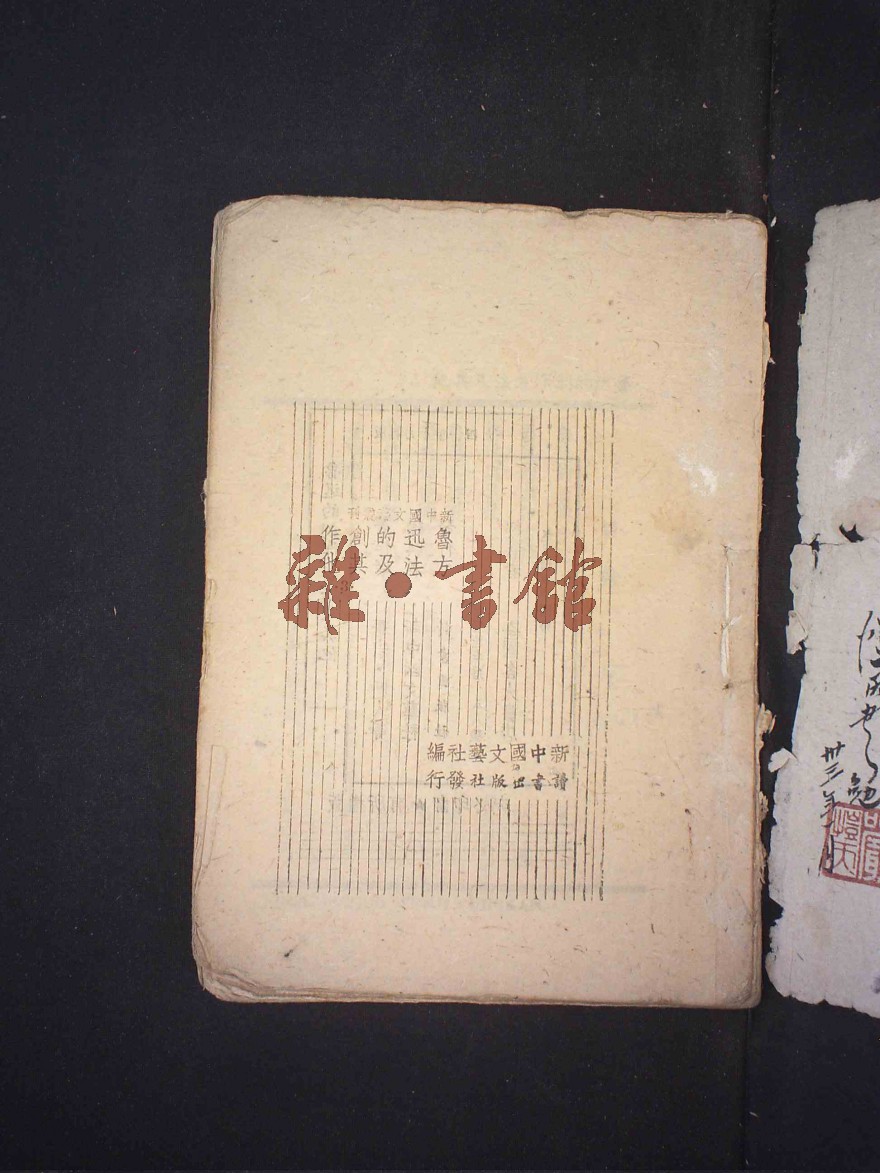 新中國文藝叢刊
魯迅的創作
方法及其他
雜·書館
新中國文藝社編
讀書出版社發行
卅三年